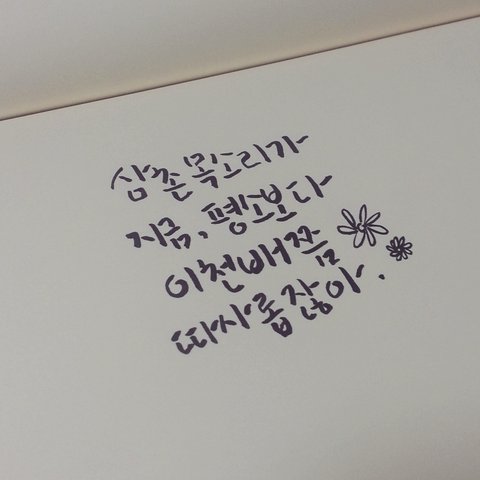 삼촌 목소리가
지금, 평소보다
이천배쯤
따사롭잖아.